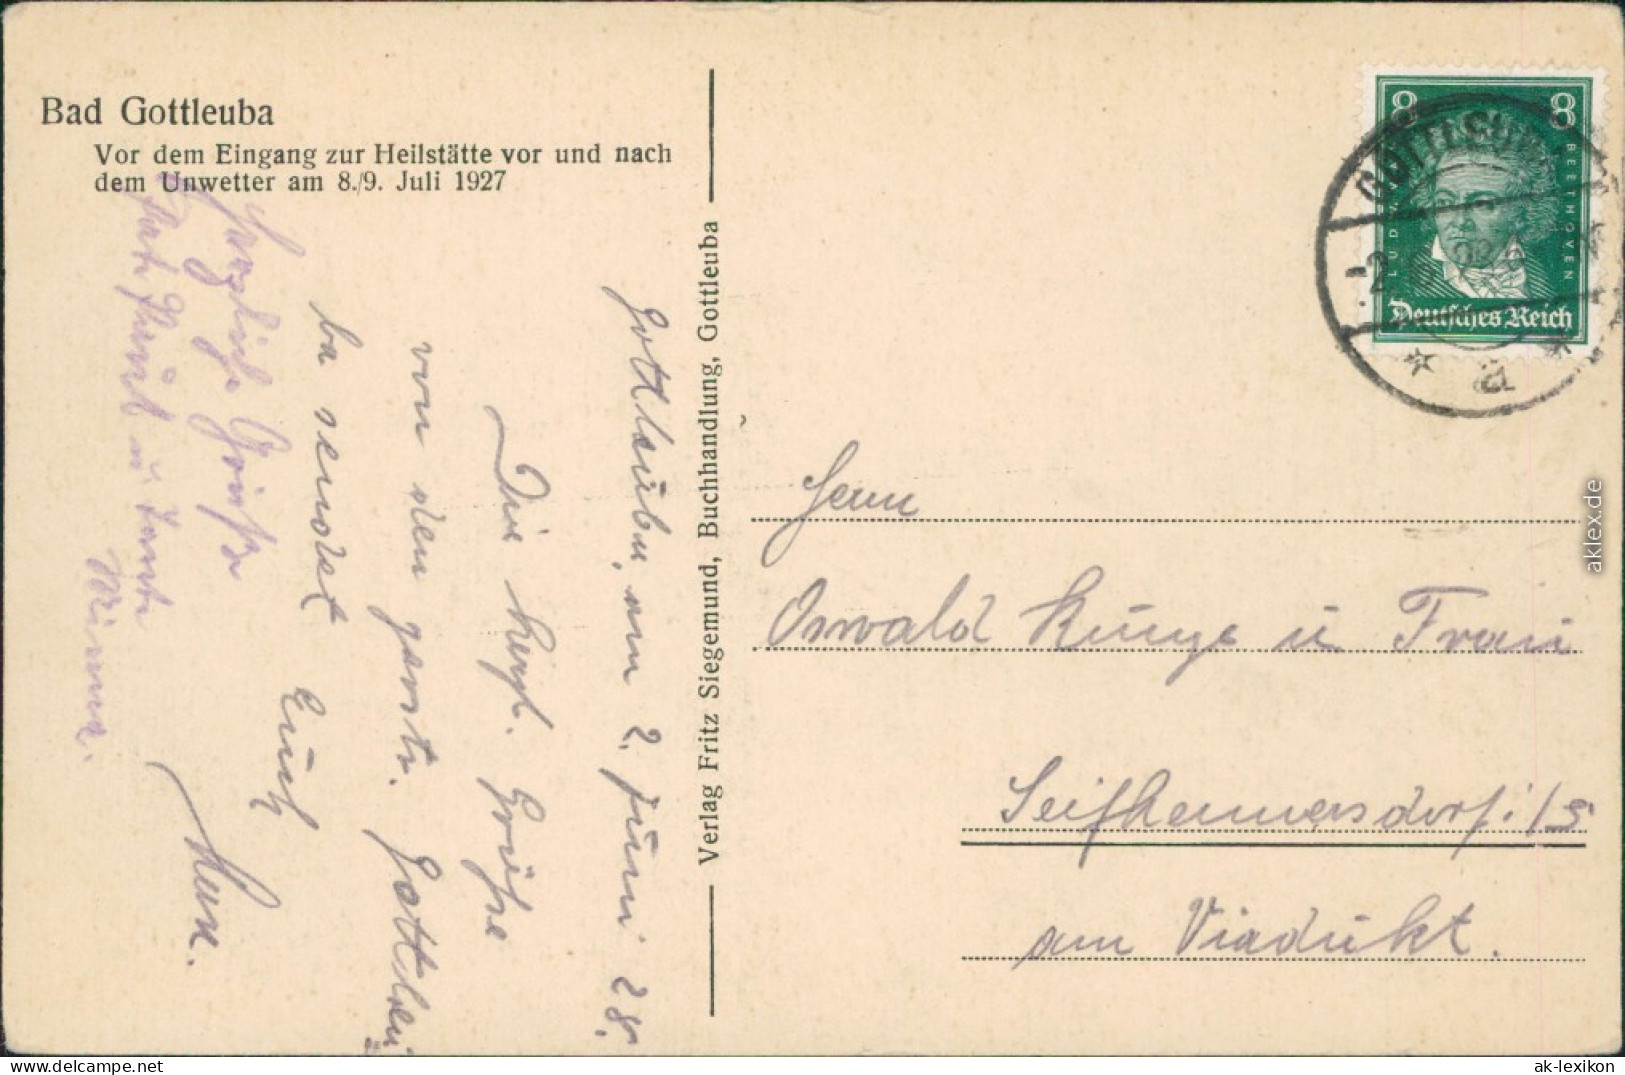 Bad Gottleuba
Vor dem Eingang zur Heilstätte vor und nach
dem Unwetter am 8./9. Juli 1927
Verlag Fritz Siegemund, Buchhandlung, Gottleuba
8 8
LUDWIG VAN BEETHOVEN
Deutsches Reich
GOTTLEUBA
* a *
Gottleuba, am 2. Juni 28.
Die herzl. Grüße
von den gastr. Gottleu
ba sendet
Euch
Herzliche Grüße
u. Tante
Minna.
Herrn
Oswald Kunze u Frau
Seifhennersdorf i/S
am Viadukt.
aklex.de
delcampe.net
ak-lexikon